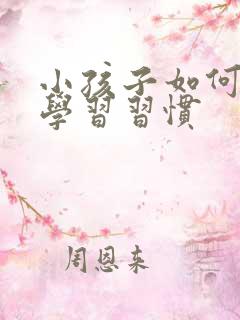 小孩子如何
學習習慣
周恩来